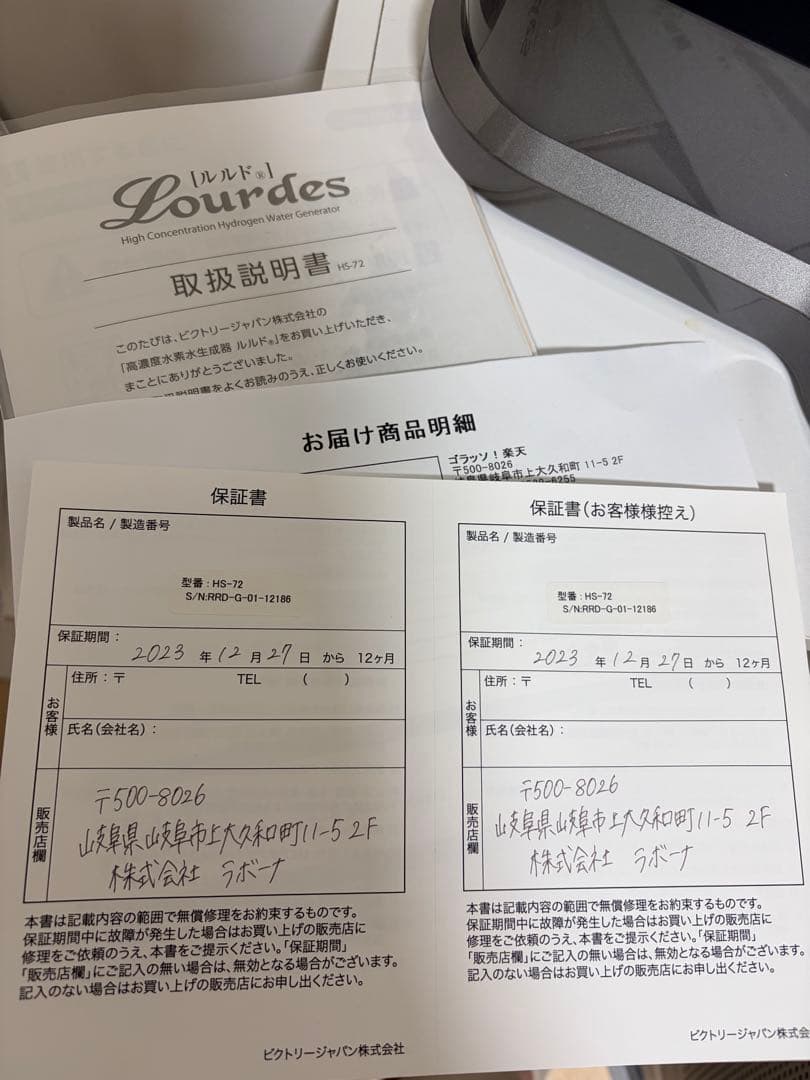 [ルルド®]
Lourdes
High Concentration Hydrogen Water Generator
取扱説明書 HS-72
このたびは、ビクトリージャパン株式会社の
「高濃度水素水生成器 ルルド®」をお買い上げいただき、
まことにありがとうございました。
説明書をよくお読みのうえ、正しくお使いください。
お届け商品明細
ゴラッソ！楽天
〒500-8026
岐阜県岐阜市上大久和町 11-5 2F
保証書
製品名 / 製造番号
型番：HS-72
S/N:RRD-G-01-12186
保証期間：
2023 年 12 月 27 日 から 12ヶ月
お客様
住所：〒 TEL ( )
氏名(会社名)：
販売店欄
〒500-8026
岐阜県岐阜市上大久和町11-5 2F
株式会社 ラボーナ
本書は記載内容の範囲で無償修理をお約束するものです。
保証期間中に故障が発生した場合はお買い上げの販売店に
修理をご依頼のうえ、本書をご提示ください。「保証期間」
「販売店欄」にご記入の無い場合は、無効となる場合がございます。
記入のない場合はお買い上げの販売店にお申し出ください。
ビクトリージャパン株式会社
保証書(お客様様控え)
製品名 / 製造番号
型番：HS-72
S/N:RRD-G-01-12186
保証期間：
2023 年 12 月 27 日 から 12ヶ月
お客様
住所：〒 TEL ( )
氏名(会社名)：
販売店欄
〒500-8026
岐阜県岐阜市上大久和町11-5 2F
株式会社 ラボーナ
本書は記載内容の範囲で無償修理をお約束するものです。
保証期間中に故障が発生した場合はお買い上げの販売店に
修理をご依頼のうえ、本書をご提示ください。「保証期間」
「販売店欄」にご記入の無い場合は、無効となる場合がございます。
記入のない場合はお買い上げの販売店にお申し出ください。
ビクトリージャパン株式会